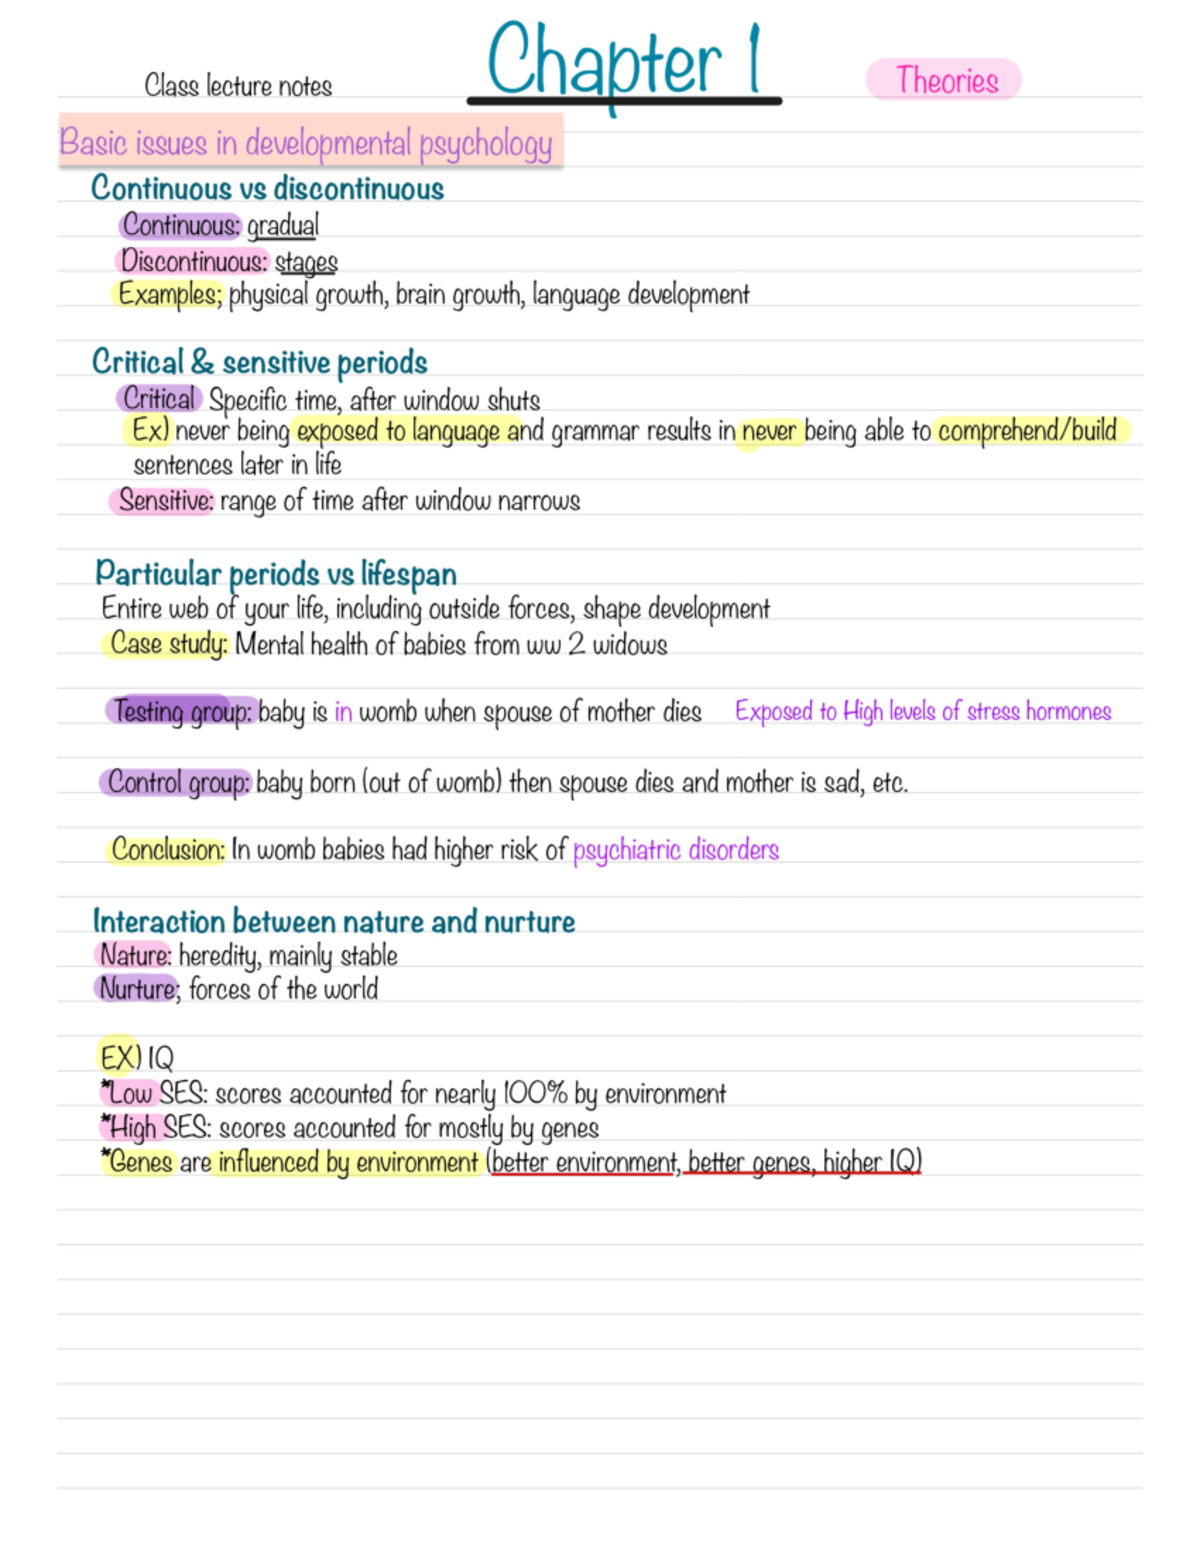 Chapter 1
Class lecture notes
Theories
Basic issues in developmental psychology
Continuous vs discontinuous
Continuous: gradual
Discontinuous: stages
Examples; physical growth, brain growth, language development
Critical & sensitive periods
Critical Specific time, after window shuts
Ex) never being exposed to language and grammar results in never being able to comprehend/build
sentences later in life
Sensitive: range of time after window narrows
Particular periods vs lifespan
Entire web of your life, including outside forces, shape development
Case study: Mental health of babies from ww 2 widows
Testing group: baby is in womb when spouse of mother dies Exposed to High levels of stress hormones
Control group: baby born (out of womb) then spouse dies and mother is sad, etc.
Conclusion: In womb babies had higher risk of psychiatric disorders
Interaction between nature and nurture
Nature: heredity, mainly stable
Nurture; forces of the world
EX) IQ
*Low SES: scores accounted for nearly 100% by environment
*High SES: scores accounted for mostly by genes
*Genes are influenced by environment (better environment, better genes, higher IQ)